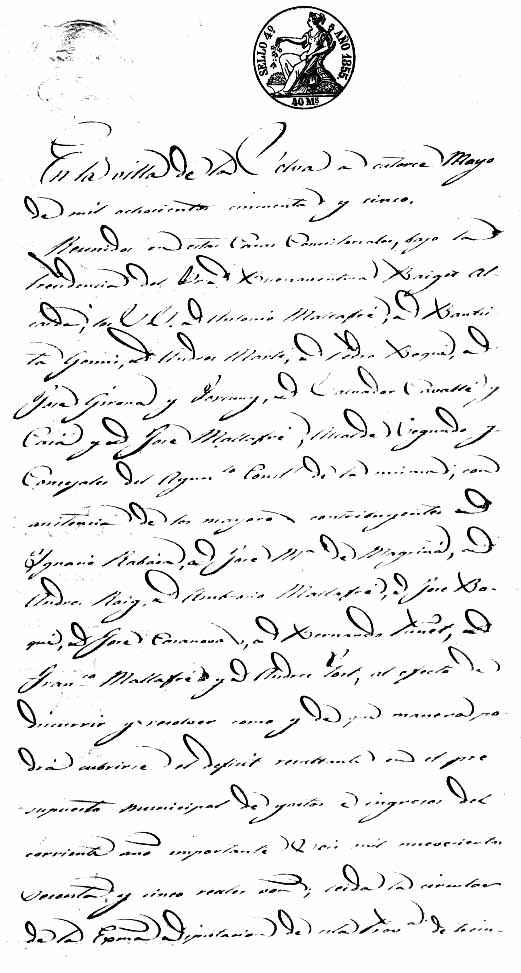 SELLO 4º AÑO 1855.
40 Ms
En la villa de la Selva a catorce Mayo
de mil ochocientos cincuenta y cinco.
Reunidos en estas Casas Consistoriales, bajo la
Presidencia del Sor. Dn. Buenaventura Al-
calde, los SS. dn Antonio Mallafré, dn Bautis-
ta dn Andres dn Pedro Roqué, dn
José Girona y dn Salvador Cavallé y
y dn José Mallafré, Alcalde Segundo y
Consejales del Ayunto. Constl. de la misma; con
asistencia de los mayores contribuyentes dn
Ignacio Rabasa, dn José Ma. de Magriñá, dn
Andres Roig, dn Ambrosio Mallafré, dn José Ro-
qué, dn José Casanovas, dn Bernardo dn
Franco. Mallafré y dn Andres al efecto de
discurrir y resolver como y de qué manera po-
drá cubrirse el deficit resultante en el pre
supuesto municipal de gastos e ingresos del
corriente año importante seis mil novecientos
sesenta y cinco reales von; leida la circular
de la Exma. Diputacion de esta Prova. de